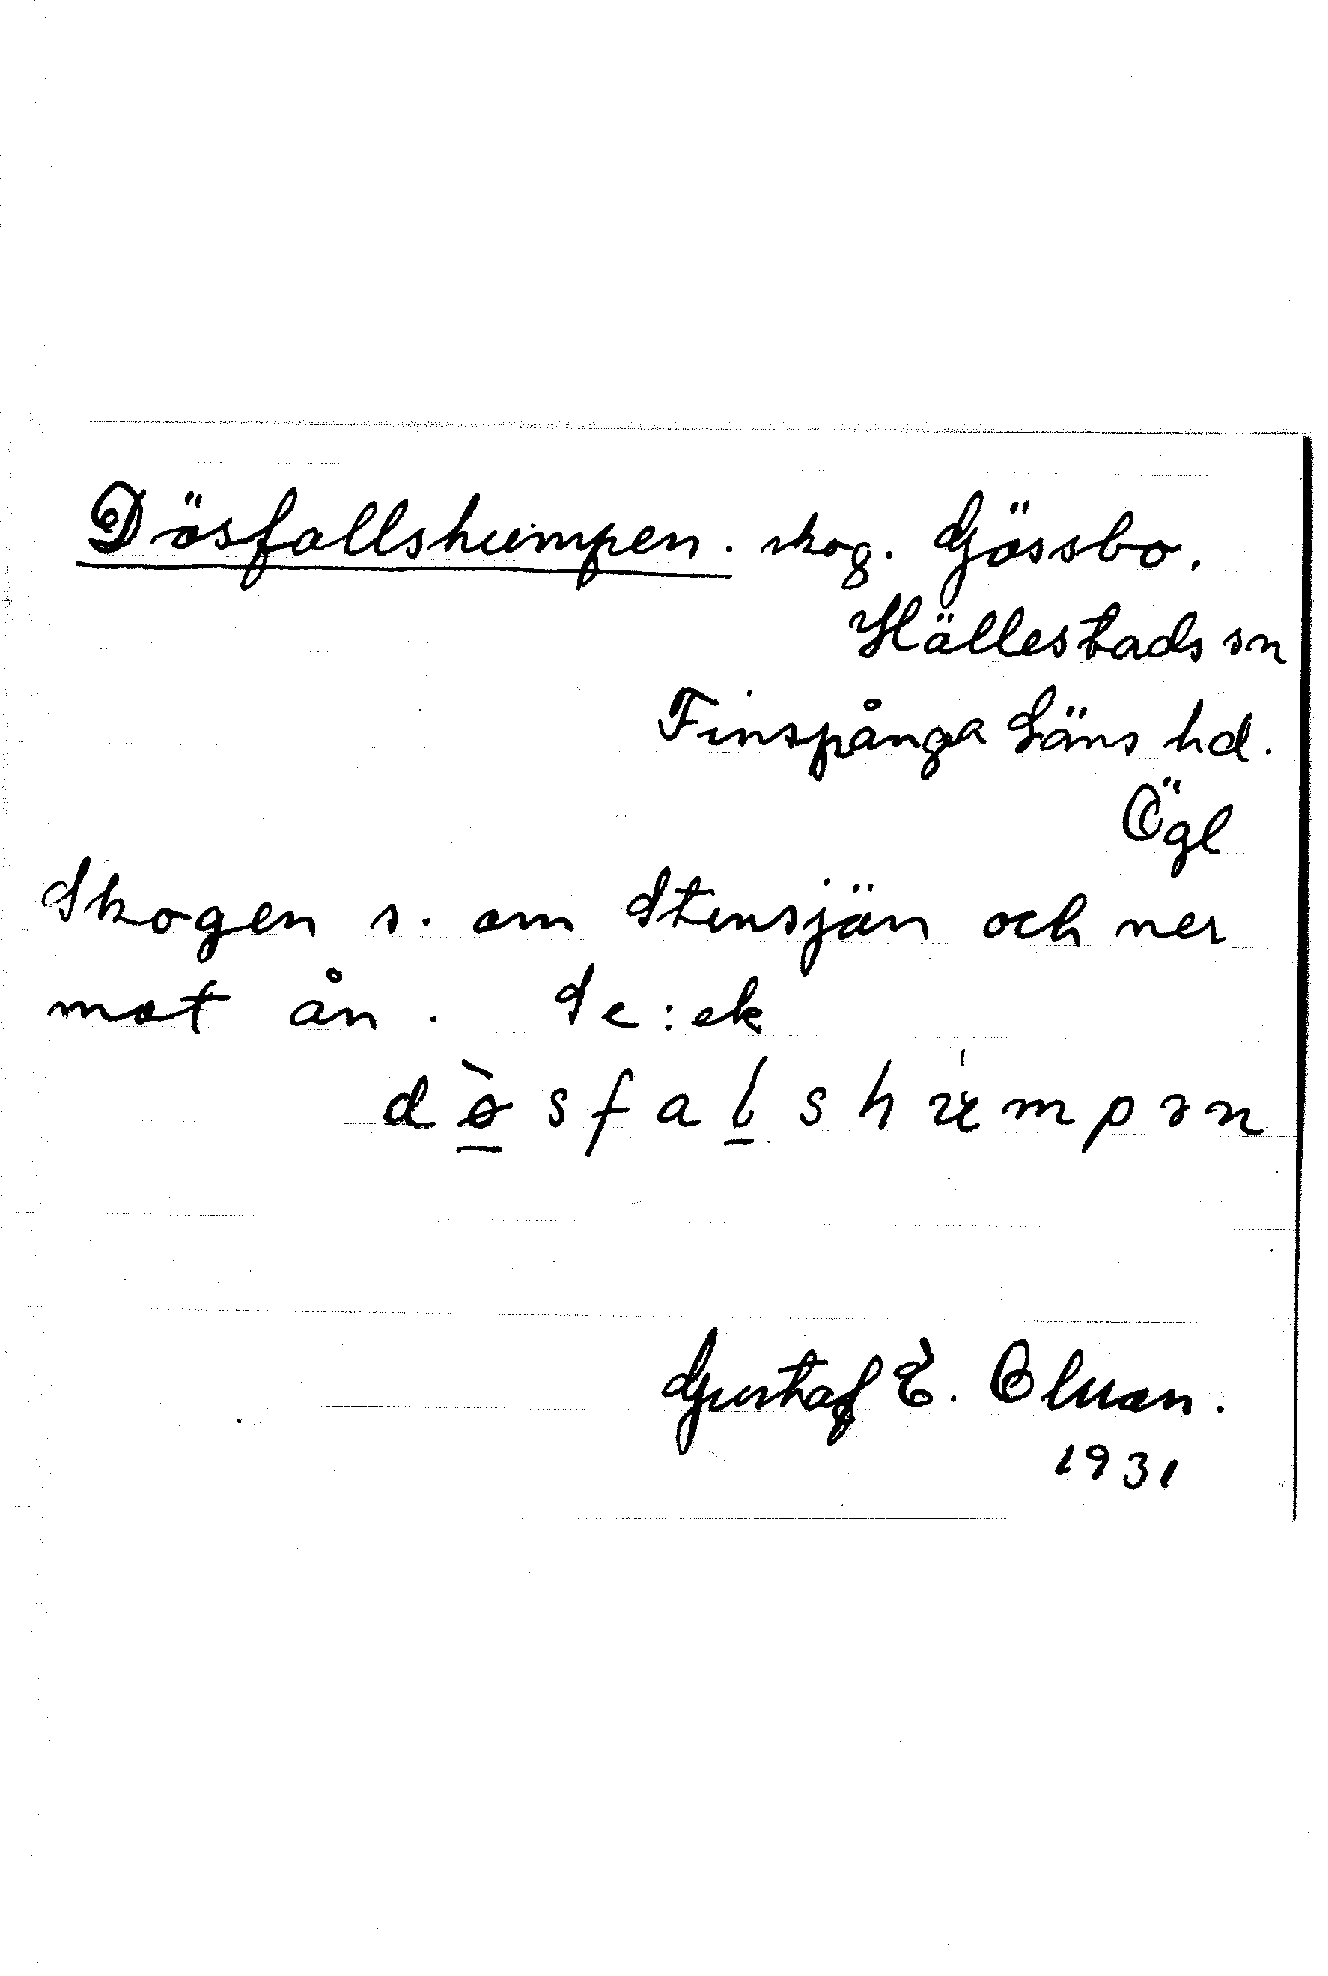 Dösfallshumpen. skog. Gössbo.
Hällestads sn
Finspånga Läns hd.
Ögl
Skogen s. om Stensjön och ner
mot ån. Se: ek
dø̀sfalshumpən
Gustaf E. Olsson.
1931